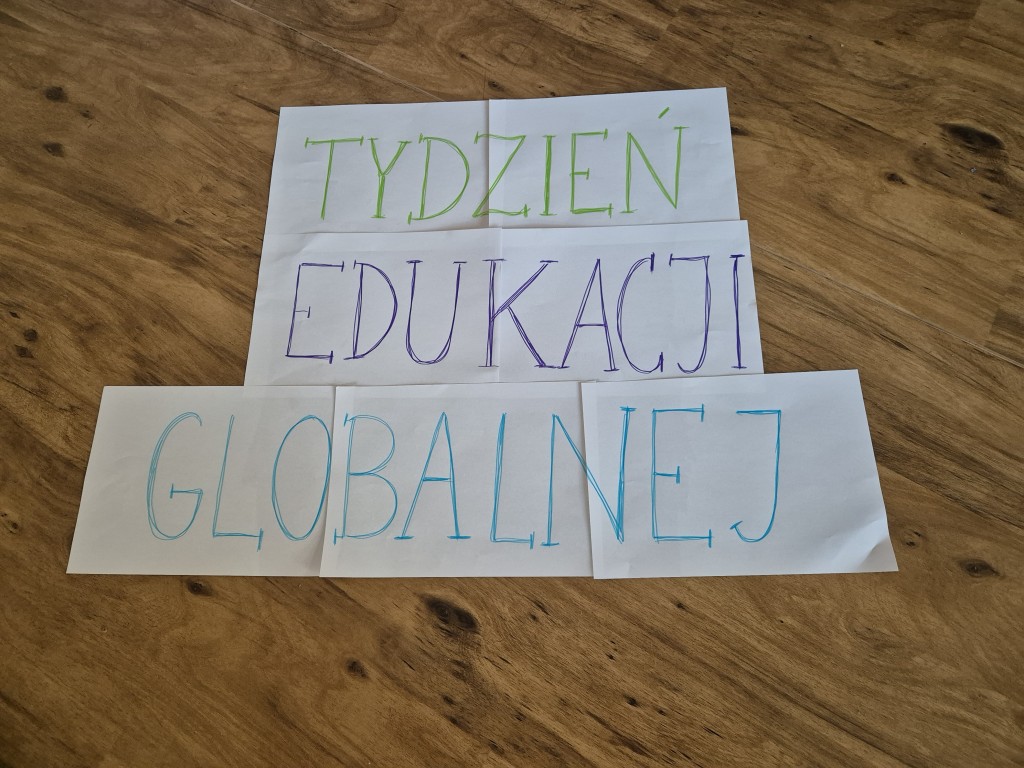 TYDZIEŃ
EDUKACJI
GLOBALNEJ